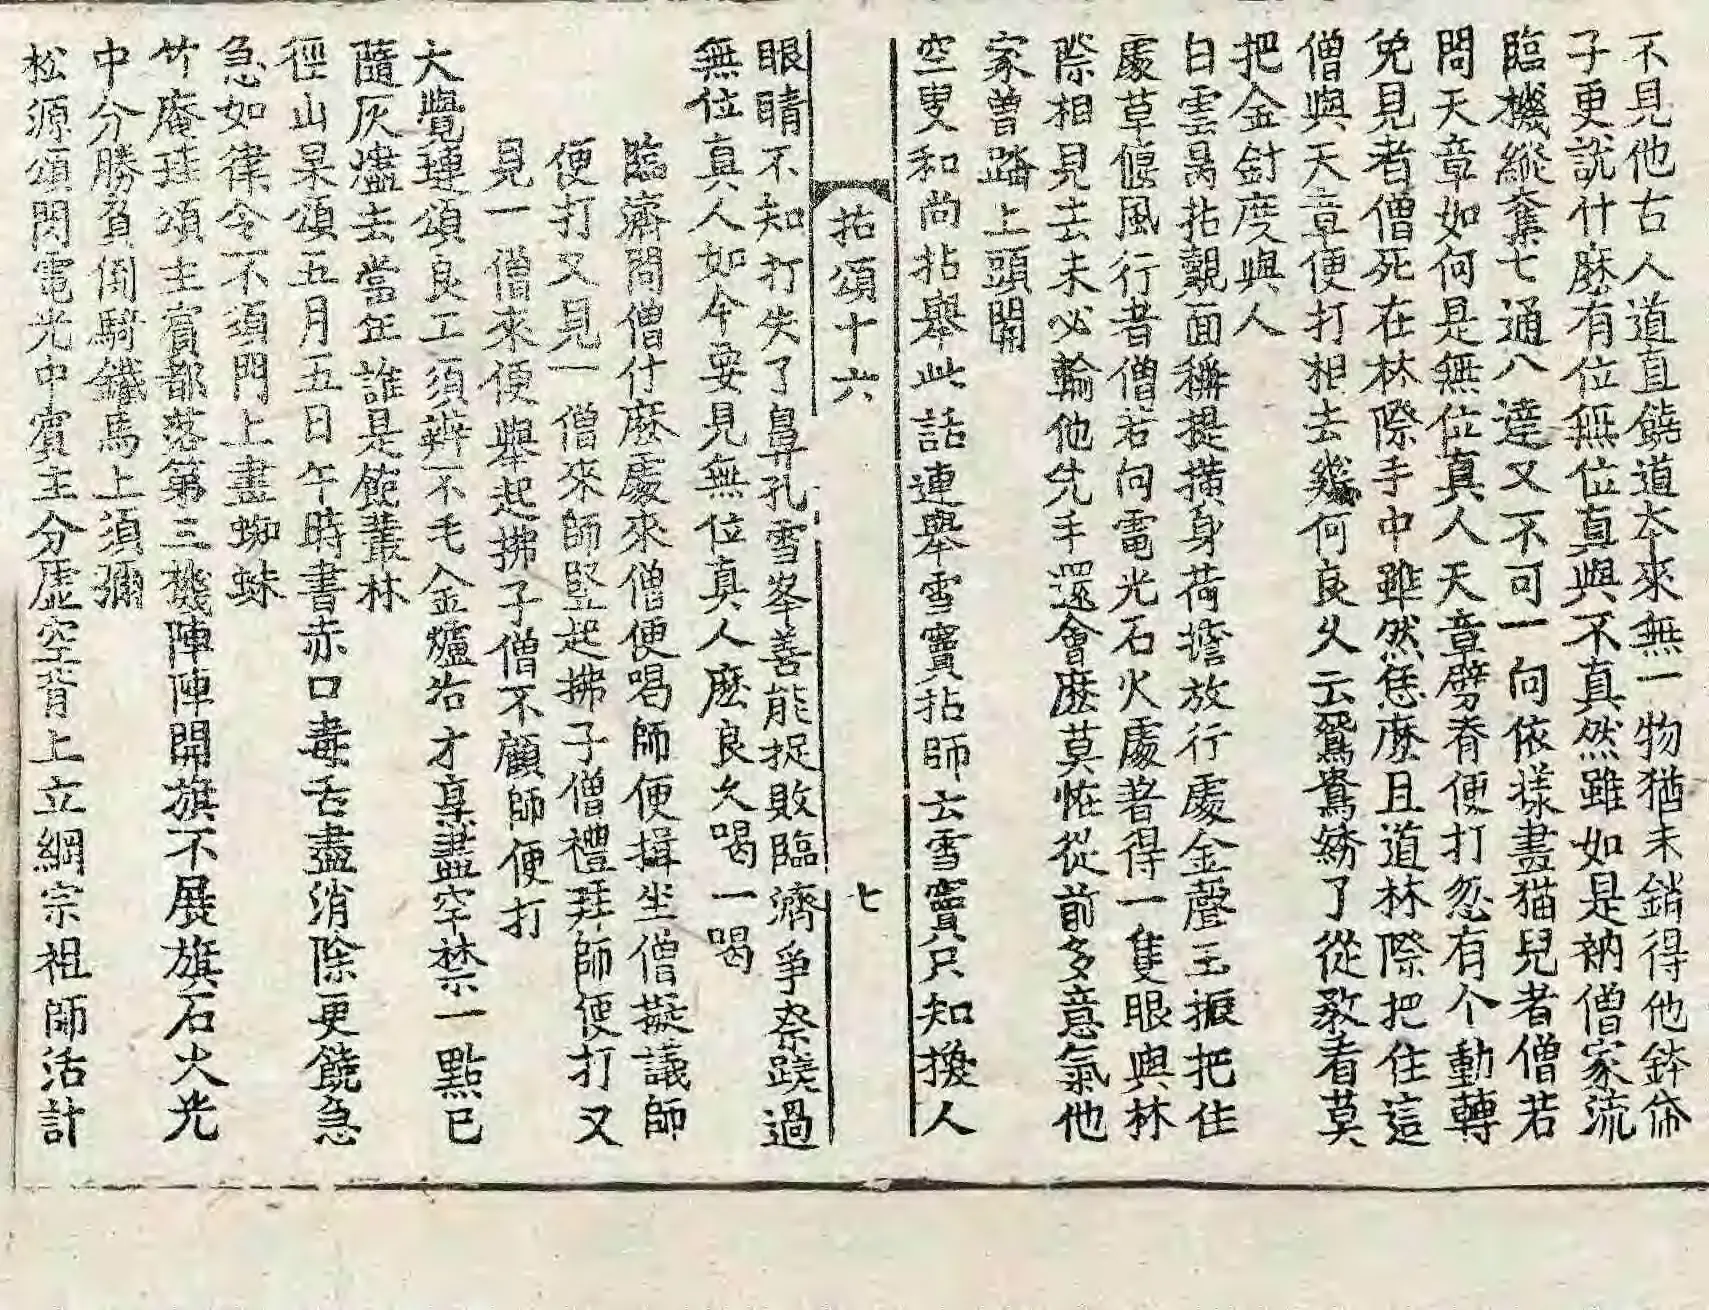 不見他古人道直饒道本來無一物猶未銷得他鉢帒
子更說什麽有位無位真與不真然雖如是衲僧家流
臨機縱奪七通八達又不可一向依樣畫猫兒者僧若
問天章如何是無位真人天章劈脊便打忽有个動轉
免見者僧死在林際手中雖然恁麽且道林際把住這
僧與天章便打相去幾何良久云鴛鴦綉了從教看莫
把金針度與人
白雲昺拈覿面稱提撗身荷擔放行處金聲玉振把住
處草偃風行者僧若向電光石火處著得一隻眼與林
際相見去未必輪他先手還會麽莫恠從前多意氣他
家曽踏上頭關
空叟和尚拈舉此話連舉雪竇拈師云雪竇只知換人
拈頌十六
七
眼睛不知打失了鼻孔雪峯善能捉敗臨濟爭柰蹉過
無位真人如今要見無位真人麽良久喝一喝
臨濟問僧什麽處來僧便喝師便揖坐僧擬議師
便打又見一僧來師竪起拂子僧禮拜師便打又
見一僧來便舉起拂子僧不顧師便打
大覺璉頌良工須辨不毛金爐冶才亰盡罕禁一點已
隨灰燼去當年誰是飽叢林
徑山杲頌五月五日午時書赤口毒舌盡消除更饒急
急如律令不須門上畫蜘蛛
竹庵珪頌主賔都落第三機陣陣開旗不展旗石火光
中分勝負倒騎鐵馬上須彌
松源頌閃電光中賔主分虛空背上立綱宗祖師活計